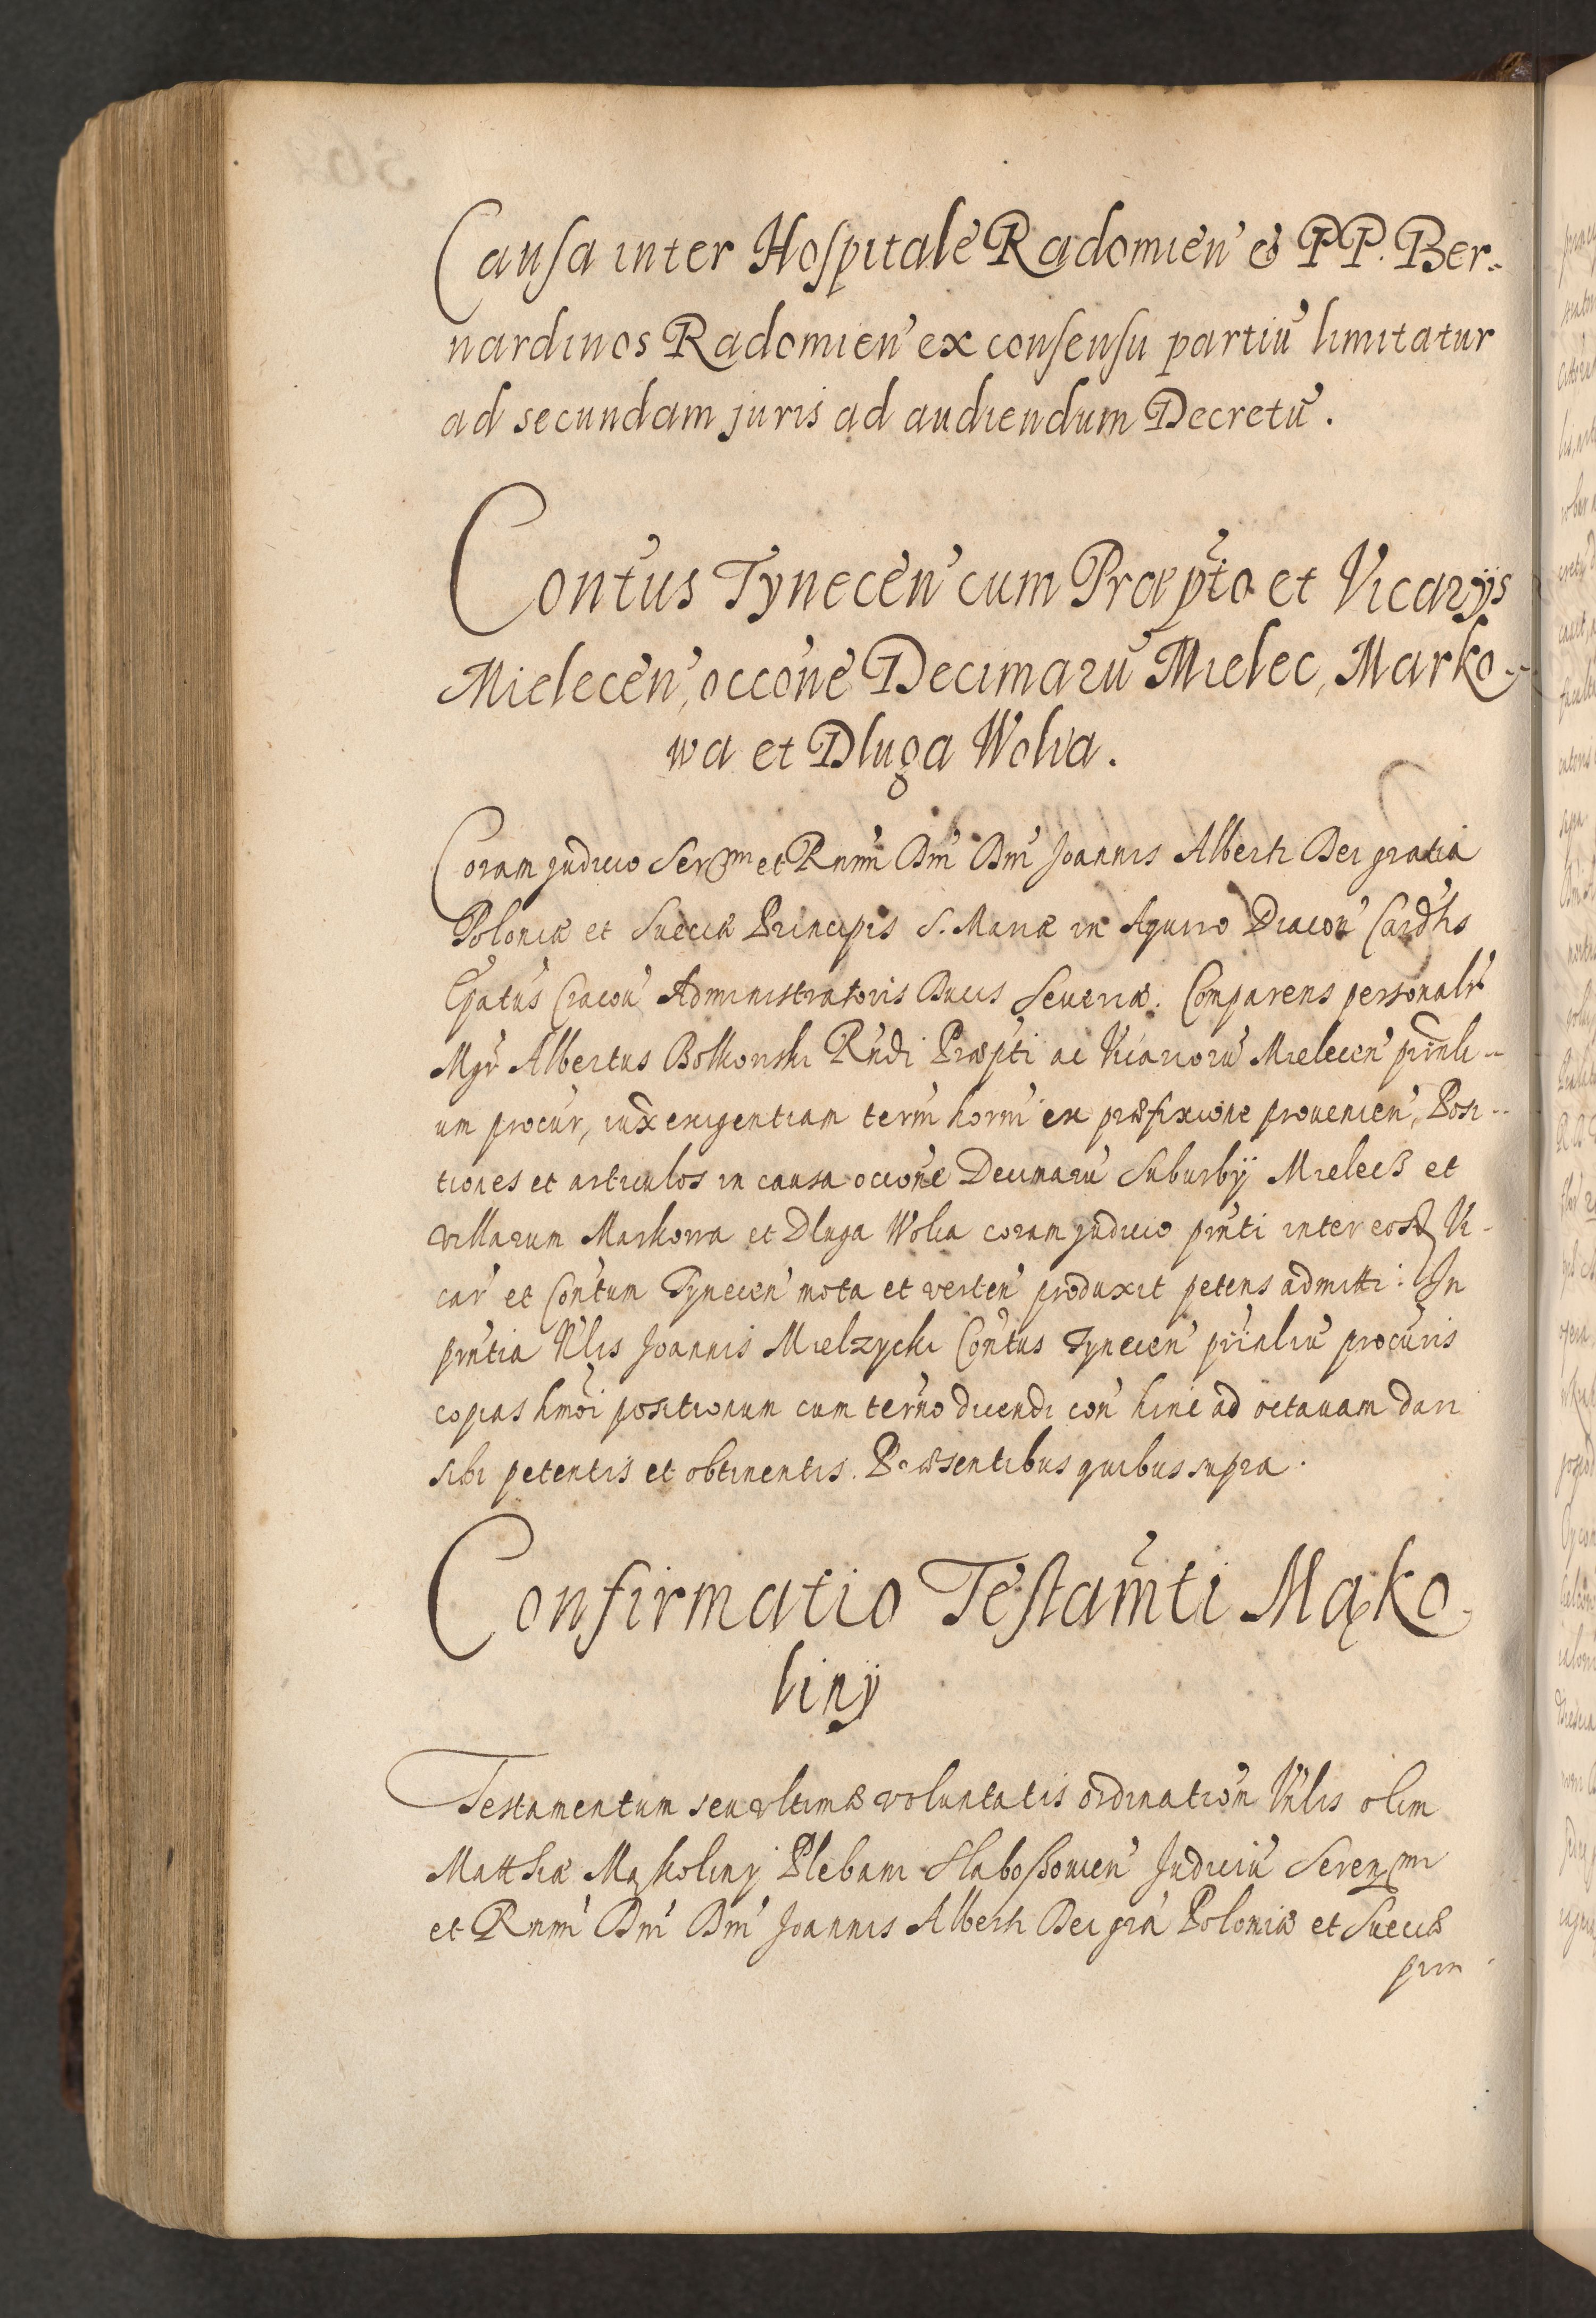 Causa inter Hospitale Radomień & PP. Ber-
nardinos Radomień ex consensu partiū limitatur
ad secundam juris ad audiendum Decretū.
Contus Tynecēn cum Præpto et Vicarÿs
Mielecēn, occōne Decimarū Mielec, Marko-
wa et Dluga Wolia.
Coram judicio Sermi et Rnmi Dni Dni Joannis Alberti Dei gratia
Poloniæ et Sueciæ Principis S. Mariæ in Aquiro Diacon Cardlis
Epatus Cracoū Administratoris Ducis Seueriæ. Comparens personalr
Mgr Albertus Bolkonski Rndi Præpti ac Vicariorū Mielecēn prinli-
um procur, iux exigentiam term horni ex præfixione prouenien, Posi-
tiones et articulos in causa occōne Decimarū Suburbÿ Mielecz et
villarum Markowa et Dluga Wolia coram judicio pnti inter eosd Vi-
car et Contum Tynecēn mota et verten produxit petens admitti: In
pntia Vnlis Joannis Mielzycki Contus Tynecēn prinliū procuris
copias hmoi positionum cum termno dicendi con hinc ad octauam dari
sibi petentis et obtinentis. Præsentibus quibus supra.
Confirmatio Testamti Mąko-
linÿ
Testamentum seu vltimæ voluntatis ordination Vnlis olim
Matthiæ Mąkoliny Plebani Slaboszouien Judiciū Serenmi
et Rnmi Dni Dni Joannis Alberti Dei gra Poloniæ et Sueciæ
prin